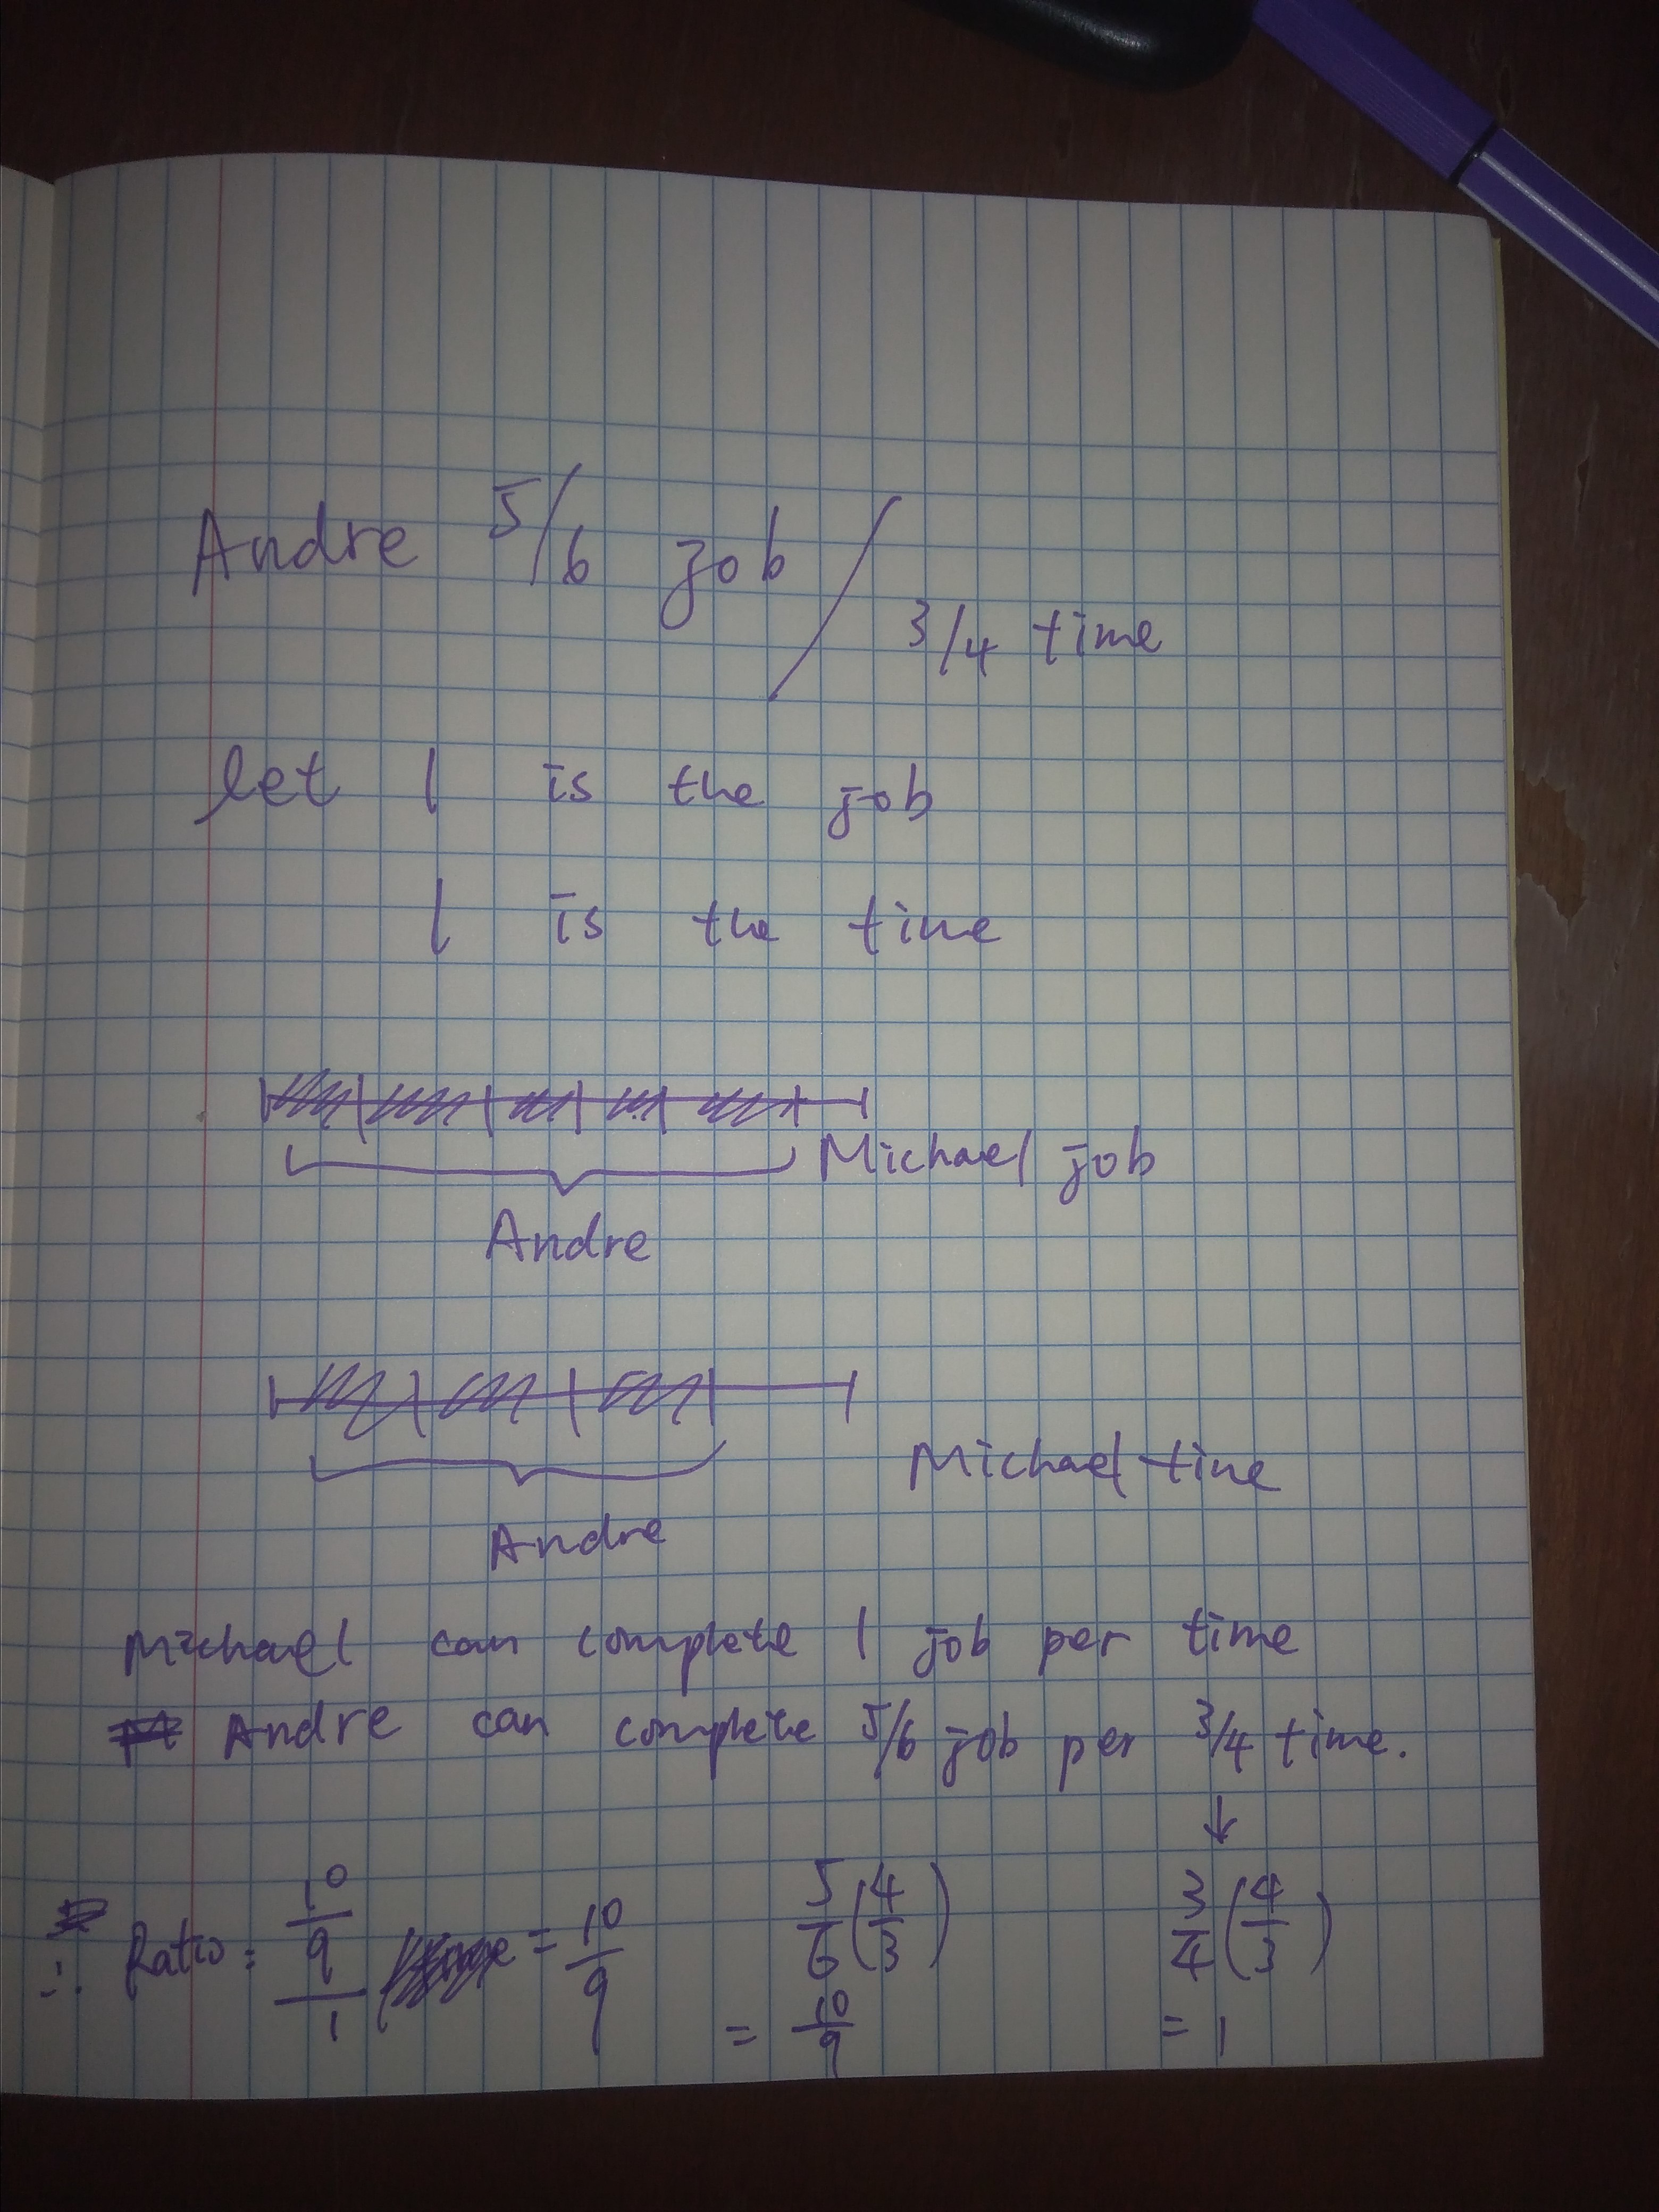 Andre 5/6 job / 3/4 time
let 1 is the job
1 is the time
Michael job
Andre
Michael time
Andre
Michael can complete 1 job per time
Andre can complete 5/6 job per 3/4 time.
↓
5/6 (4/3) 3/4 (4/3)
= 10/9 = 1
∴ Ratio = 10/9 / 1 = 10/9